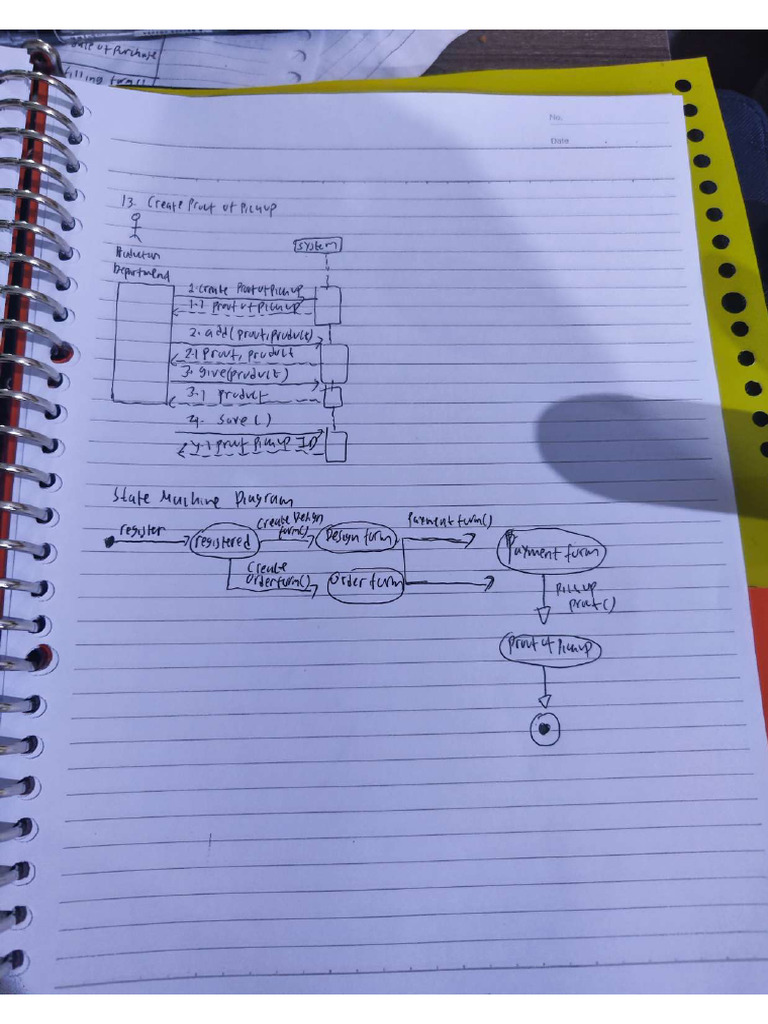 Date of Purchase
filling form()
No.
Date
13. Create Proof of Pickup
System
Production
Department
1. create Proof of Pickup
1.1 proof of pickup
2. add(proof, product)
2.1 proof, product
3. give(product)
3.1 product
4. save()
4.1 proof pickup ID
State Machine Diagram
register
registered
Create Design
form()
Design form
Payment form()
Payment form
Create
Orderform()
Order form
Pickup
proof()
proof of Pickup